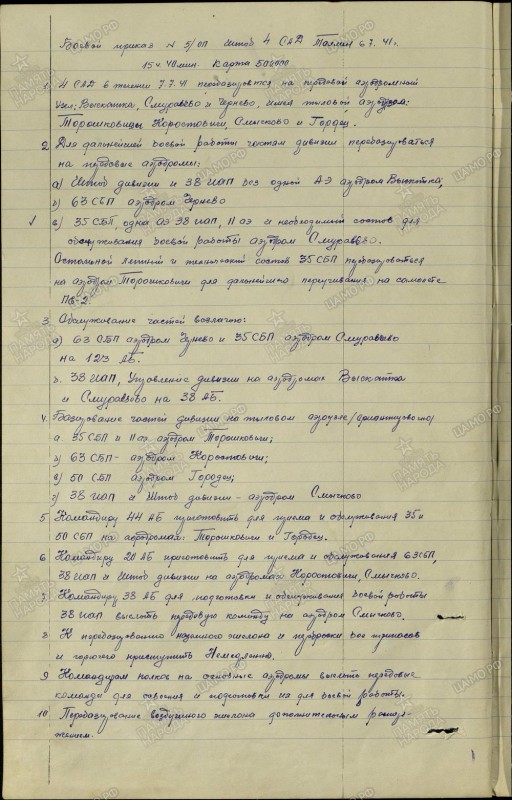 Боевой приказ N 5/оп Штаб 4 САД Таллин 6.7.41г.
15ч 40мин Карта 500000
1 4 САД в течении 7.7.41 перебазируется на передовой аэродромный
узел: Выскатка, Смуравьево и Чернево, имея тыловой аэроузел:
Торошковичи, Коростовичи, Смычково и Городец.
2 Для дальнейшей боевой работы частям дивизии перебазироваться
на передовые аэродромы:
а) Штаб дивизии и 38 иап без одной АЭ аэродром Выскатка,
б) 63 СБП аэродром Чернево
в) 35 СБП, одна аэ 38 иап, II аэ и необходимый состав для
обслуживания боевой работы аэродром Смуравьево.
Остальной летный и технический состав 35 СБП перебазироваться
на аэродром Торошковичи для дальнейшего переучивания на самолете
Пе-2.
3 Обслуживание частей возлагаю:
а) 63 СБП аэродром Чернево и 35 СБП аэродром Смуравьево
на 123 АБ.
б. 38 иап, Управление дивизии на аэродромах Выскатка
и Смуравьево на 38 АБ.
4. Базирование частей дивизии на тыловом аэроузле
а. 35 СБП и II аэ аэродром Торошковичи;
б) 63 СБП - аэродром Коростовичи;
в) 50 СБП аэродром Городец;
г) 38 иап и Штаб дивизии - аэродром Смычково
5 Командиру 44 АБ приготовить для приема и обслуживания 35 и
50 СБП на аэродромах: Торошковичи и Городец.
6 Командиру 20 АБ приготовить для приема и обслуживания 63 СБП,
38 иап и Штаб дивизии на аэродромах Коростовичи, Смычково.
7 Командиру 38 АБ для подготовки и обслуживания боевой работы
38 иап выслать передовую команду на аэродром Смычково.
8 К перебазированию наземного эшелона и переброски бое припасов
и горючего приступить Немедленно.
9 Командирам полков на основные аэродромы выслать передовые
команды для освоения и подготовки их для боевой работы.
10 Перебазирование воздушного эшелона дополнительным распоря-
жением.
1
ЦАМО.РФ
ПАМЯТЬ НАРОДА